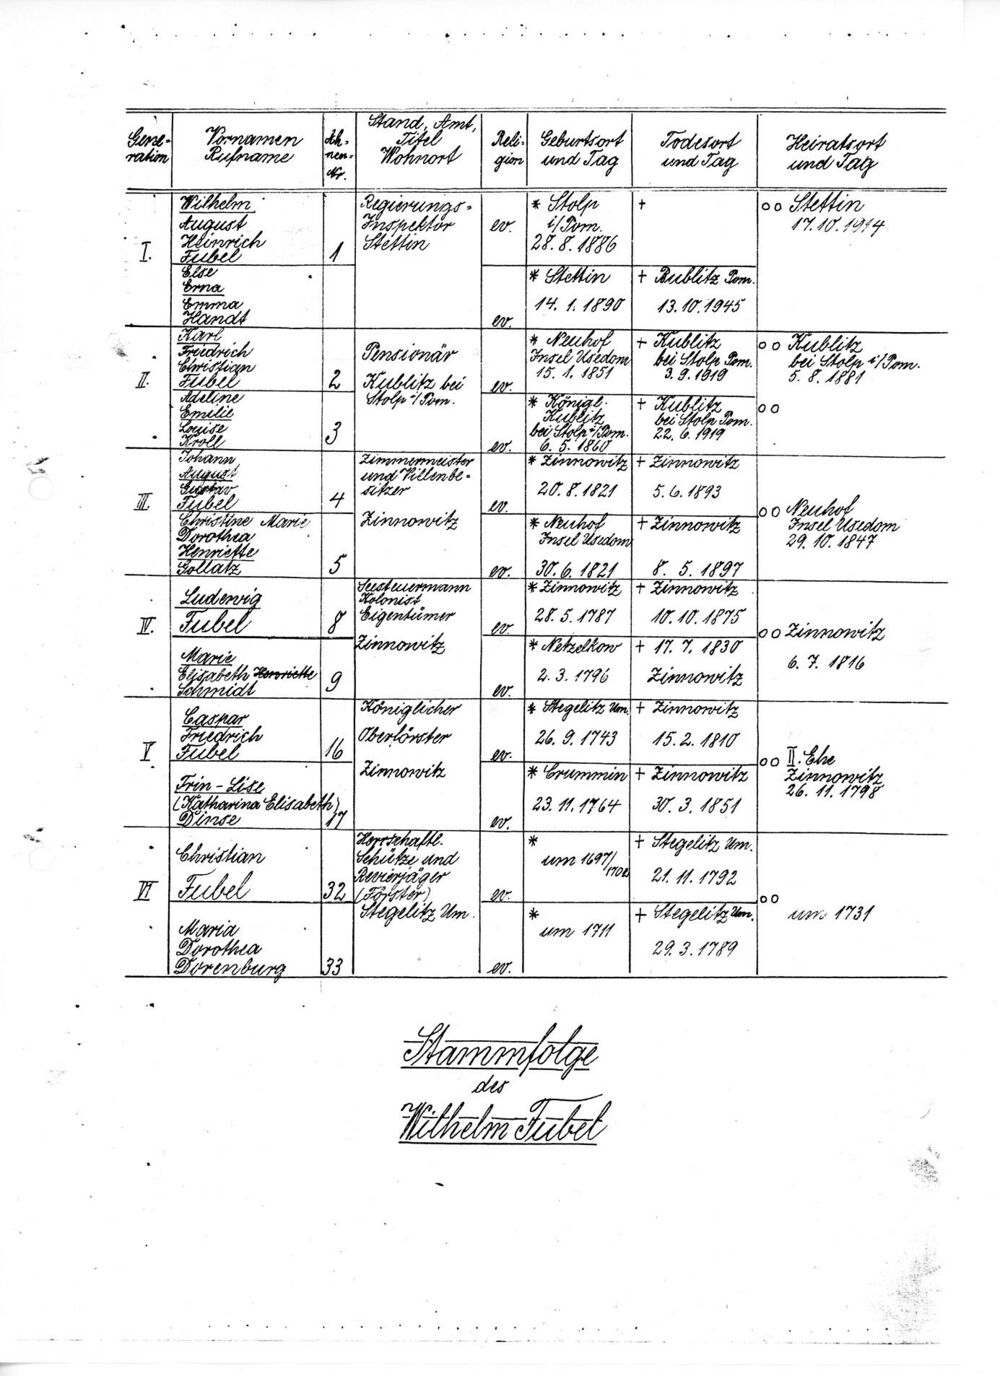 Gene-
ration
Vornamen
Rufname
Ah-
nen-
Nr.
Stand, Amt,
Titel
Wohnort
Reli-
gion
Geburtsort
und Tag
Todesort
und Tag
Heiratsort
und Tag
I.
Wilhelm
August
Heinrich
Fubel
1
Regierungs-
Inspektor
Stettin
ev.
* Stolp
i/Pom.
28. 8. 1886
+
oo Stettin
17. 10. 1914
Else
Erna
Emma
Handt
ev.
* Stettin
14. 1. 1890
+ Bublitz Pom.
13. 10. 1945
II.
Karl
Friedrich
Christian
Fubel
2
Pensionär
Kublitz bei
Stolp i/Pom.
ev.
* Neuhof
Insel Usedom
15. 1. 1851
+ Kublitz
bei Stolp Pom.
3. 9. 1919
oo Kublitz
bei Stolp i/Pom.
5. 8. 1881
Adeline
Emilie
Louise
Kroll
3
ev.
* Königl.
Kublitz
bei Stolp i/Pom.
6. 5. 1860
+ Kublitz
bei Stolp Pom.
22. 6. 1919
oo
III.
Johann
August
Gustav
Fubel
4
Zimmermeister
und Villenbe-
sitzer
Zinnowitz
ev.
* Zinnowitz
20. 8. 1821
+ Zinnowitz
5. 6. 1893
oo Neuhof
Insel Usedom
29. 10. 1847
Christine Marie
Dorothea
Henriette
Gollatz
5
ev.
* Neuhof
Insel Usedom
30. 6. 1821
+ Zinnowitz
8. 5. 1897
IV.
Ludewig
Fubel
8
Seesteuermann
Kolonist
Eigentümer
Zinnowitz
ev.
* Zinnowitz
28. 5. 1787
+ Zinnowitz
10. 10. 1875
oo Zinnowitz
6. 7. 1816
Marie
Elisabeth Henriette
Schmidt
9
ev.
* Netzelkow
2. 3. 1796
+ 17. 7. 1830
Zinnowitz
V
Caspar
Friedrich
Fubel
16
Königlicher
Oberförster
Zinnowitz
ev.
* Stegelitz Um.
26. 9. 1743
+ Zinnowitz
15. 2. 1810
oo II. Ehe
Zinnowitz
26. 11. 1798
Trin-Lise
(Katharina Elisabeth)
Dinse
17
ev.
* Crummin
23. 11. 1764
+ Zinnowitz
30. 3. 1851
VI
Christian
Fubel
32
Herrschaftl.
Schütze und
Revierjäger
(Förster)
Stegelitz Um.
ev.
*
um 1697/
1702
+ Stegelitz Um.
21. 11. 1792
oo
um 1731
Maria
Dorothea
Dorenburg
33
ev.
*
um 1711
+ Stegelitz Um.
29. 3. 1789
Stammfolge
des
Wilhelm Fubel